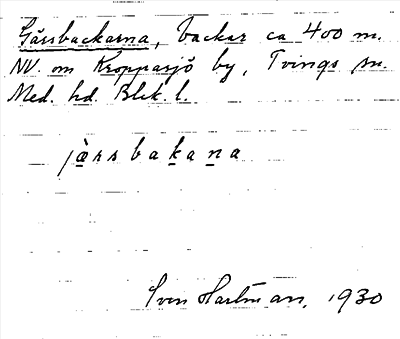 Gårsbackarna, backar ca 400 m.
NV. om Kropparsjö by, Tvings sn.
Med. hd. Blek. l.
jàrsbakana
Sven Hartman, 1930